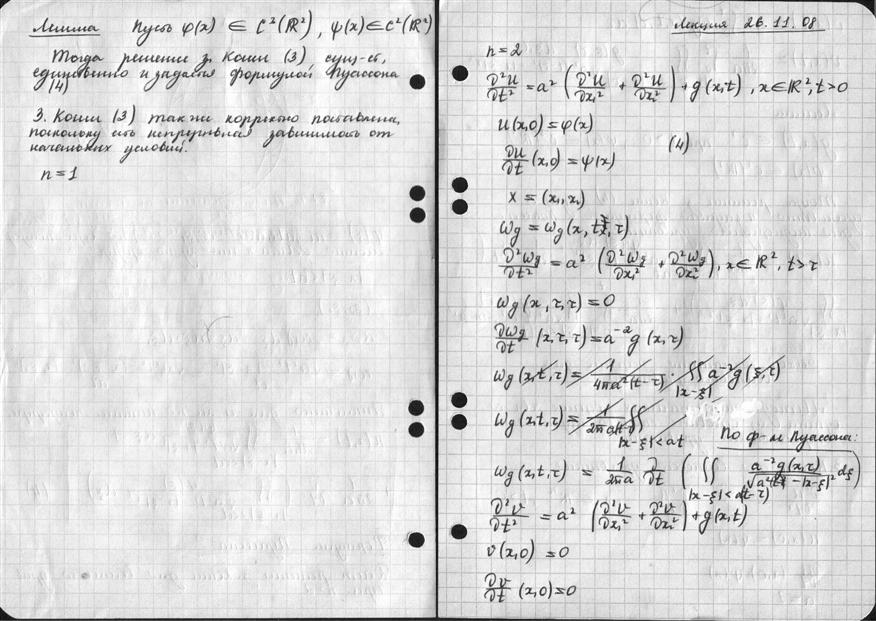 Лемма Пусть φ(x) ∈ C²(ℝ²), ψ(x) ∈ C²(ℝ²)
Тогда решение з. Коши (3) сущ-ет,
единственно и задается формулой Пуассона
(4)
З. Коши (3) также корректно поставлена,
поскольку есть непрерывная зависимость от
начальных условий.
n = 1
Лекция 26.11.08
n = 2
∂²u/∂t² = a² (∂²u/∂x₁² + ∂²u/∂x₂²) + g(x,t), x ∈ ℝ², t > 0
u(x,0) = φ(x)
(4)
∂u/∂t (x,0) = ψ(x)
x = (x₁, x₂)
ω_g = ω_g(x, t, τ)
∂²ω_g/∂t² = a² (∂²ω_g/∂x₁² + ∂²ω_g/∂x₂²), x ∈ ℝ², t > τ
ω_g(x, τ, τ) = 0
∂ω_g/∂t (x,τ,τ) = a⁻² g(x,τ)
ω_g(x,t,τ) = 1/(4πa²(t-τ)) · ∬_{|x-ξ|} a⁻² g(ξ,τ)
ω_g(x,t,τ) = 1/(2πa) ∬_{|x-ξ|<at}
По ф-ле Пуассона:
ω_g(x,t,τ) = 1/(2πa) ∂/∂t (∬_{|x-ξ|<a(t-τ)} a⁻² g(x,τ)/√( - |x-ξ|²) dξ)
∂²v/∂t² = a² (∂²v/∂x₁² + ∂²v/∂x₂²) + g(x,t)
v(x,0) = 0
∂v/∂t (x,0) = 0